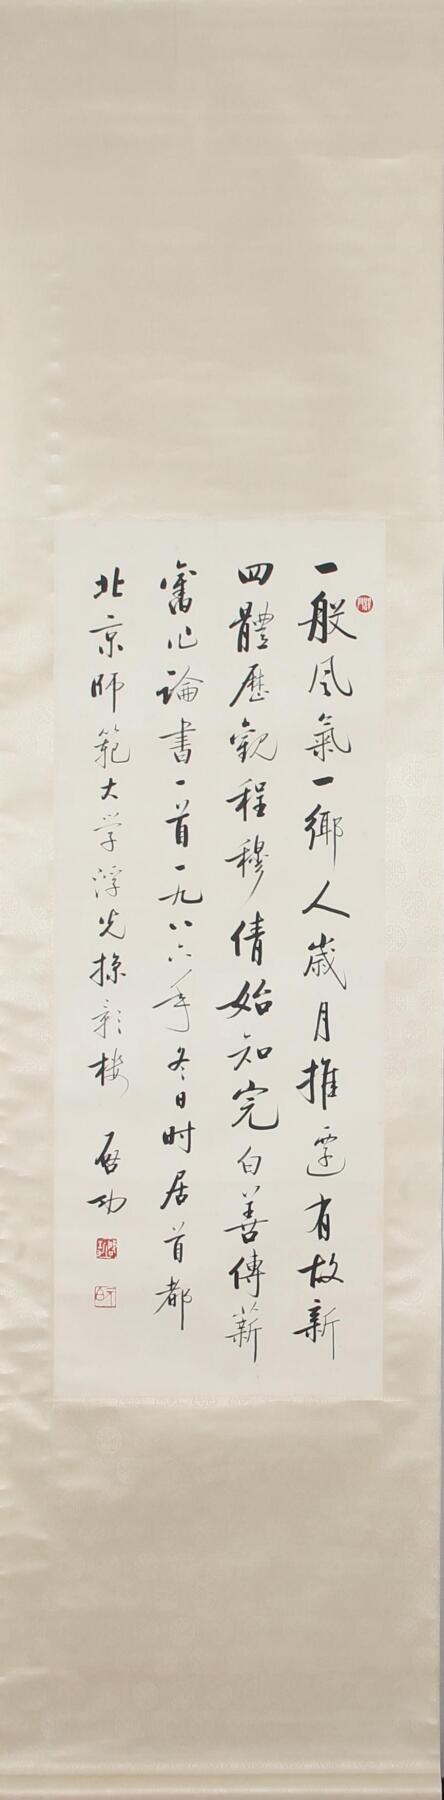 一般風氣一鄉人歲月推遷有故新
四體歷觀程穆倩始知完白善傳薪
舊作論書一首一九八六年冬日時居首都
北京師範大学浮光掠影樓 启功